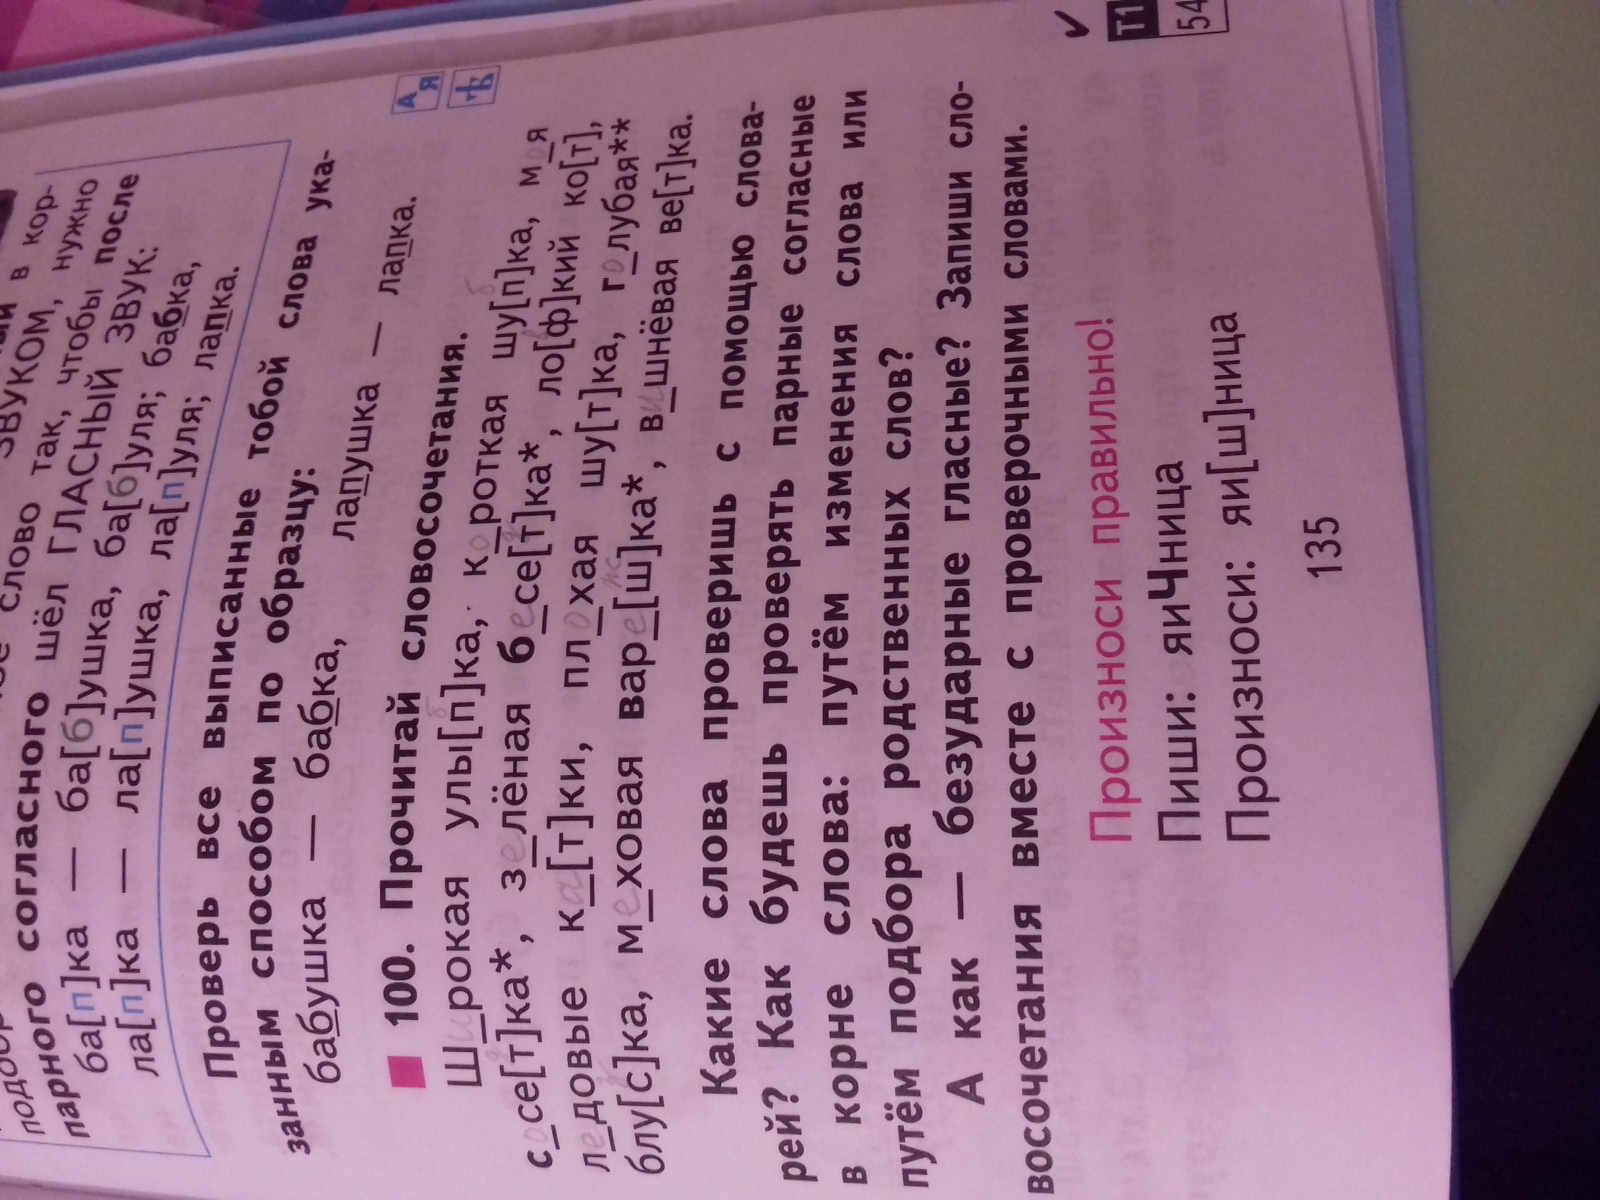 подбор
слово так, чтобы
ЗВУКОМ, нужно
в кор-
парного согласного шёл ГЛАСНЫЙ ЗВУК: после
ба[п]ка — ба[б]ушка, ба[б]уля; бабка,
ла[п]ка — ла[п]ушка, ла[п]уля; лапка.
Проверь все выписанные тобой слова ука-
занным способом по образцу:
бабушка — бабка, лапушка — лапка.
100. Прочитай словосочетания.
Широкая улы[п]ка, короткая шу[п]ка, моя
сосе[т]ка*, зелёная бесе[т]ка*, ло[ф]кий ко[т],
ледовые ка[т]ки, плохая шу[т]ка, голубая**
блу[с]ка, меховая варе[ш]ка*, вишнёвая ве[т]ка.
Какие слова проверишь с помощью слова-
рей? Как будешь проверять парные согласные
в корне слова: путём изменения слова или
путём подбора родственных слов?
А как — безударные гласные? Запиши сло-
восочетания вместе с проверочными словами.
Произноси правильно!
Пиши: яиЧница
Произноси: яи[ш]ница
135
А
Я
Т1
54